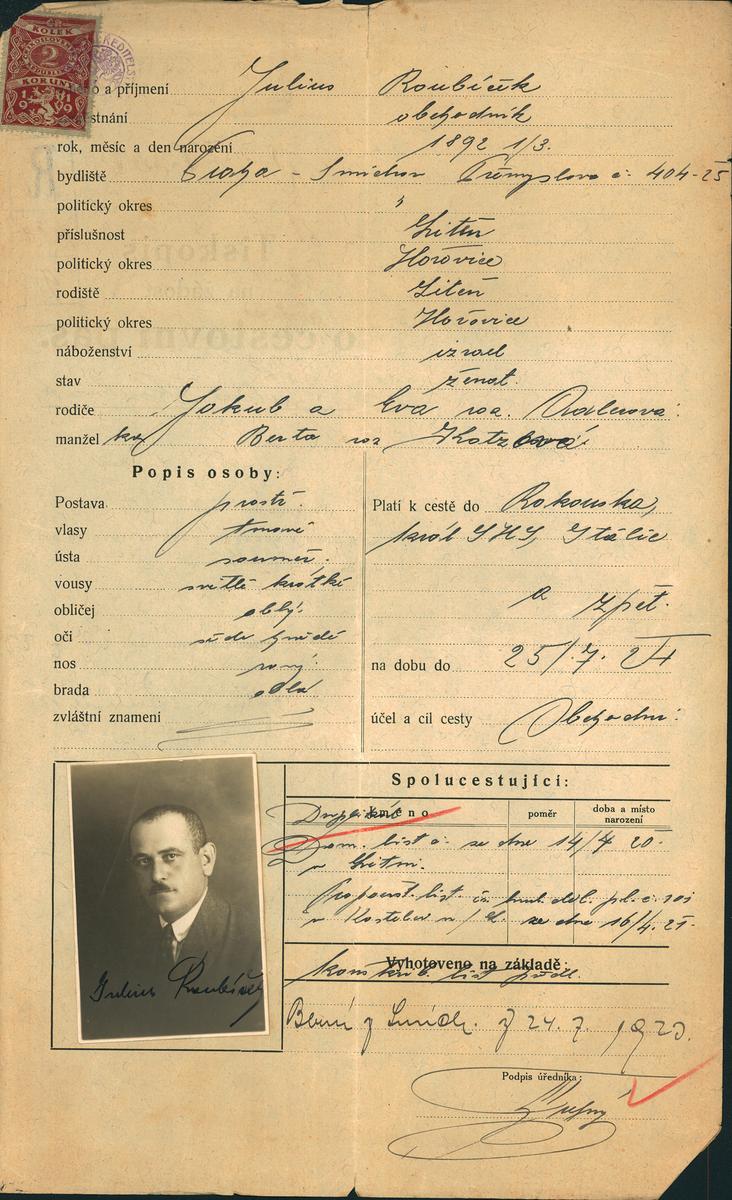 KOLEK
2
KORUNY
1919
o a příjmení Julius Roubíček
městnání obchodník
rok, měsíc a den narození 1892 1/3.
bydliště Praha - Smíchov Přemyslova č. 404-25
politický okres "
příslušnost Liteň
politický okres Hořovice
rodiště Liteň
politický okres Hořovice
náboženství izrael
stav ženat.
rodiče Jakub a Eva roz. Adlerová.
manžel ka Berta roz Katzová
Popis osoby:
Postava prostř.
vlasy tmavé
ústa souměr.
vousy světlé krátké
obličej oblý.
oči šedo hnědé
nos rovný.
brada oblá
zvláštní znamení
Platí k cestě do Rakouska,
král SHS, Itálie
a zpět.
na dobu do 25/7. 24
účel a cíl cesty Obchodní.
Spolucestující:
Jméno poměr doba a místo narození
Dom. list č. ze dne 14/4 20.
v Litni.
Propoušt. list
v Kostelec n/L. ze dne 16/4. 21.
Vyhotoveno na základě:
list
Julius Roubíček
24. 7. 1923.
Podpis úředníka: